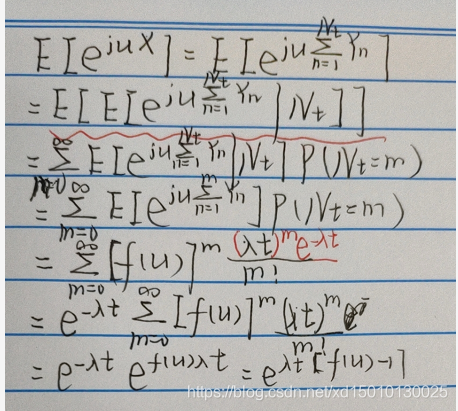 E[e^{juX}] = E[e^{ju∑_{n=1}^{N_t} Y_n}]
= E[E[e^{ju∑_{n=1}^{N_t} Y_n} | N_t]]
= ∑_{m=0}^{∞} E[e^{ju∑_{n=1}^{N_t} Y_n} | N_t] P(N_t=m)
= ∑_{m=0}^{∞} E[e^{ju∑_{n=1}^{m} Y_n}] P(N_t=m)
= ∑_{m=0}^{∞} [f(u)]^m (λt)^m e^{-λt} / m!
= e^{-λt} ∑_{m=0}^{∞} [f(u)]^m (λt)^m / m!
= e^{-λt} e^{f(u)λt} = e^{λt[f(u)-1]}
https://blog.csdn.net/xd15010130025